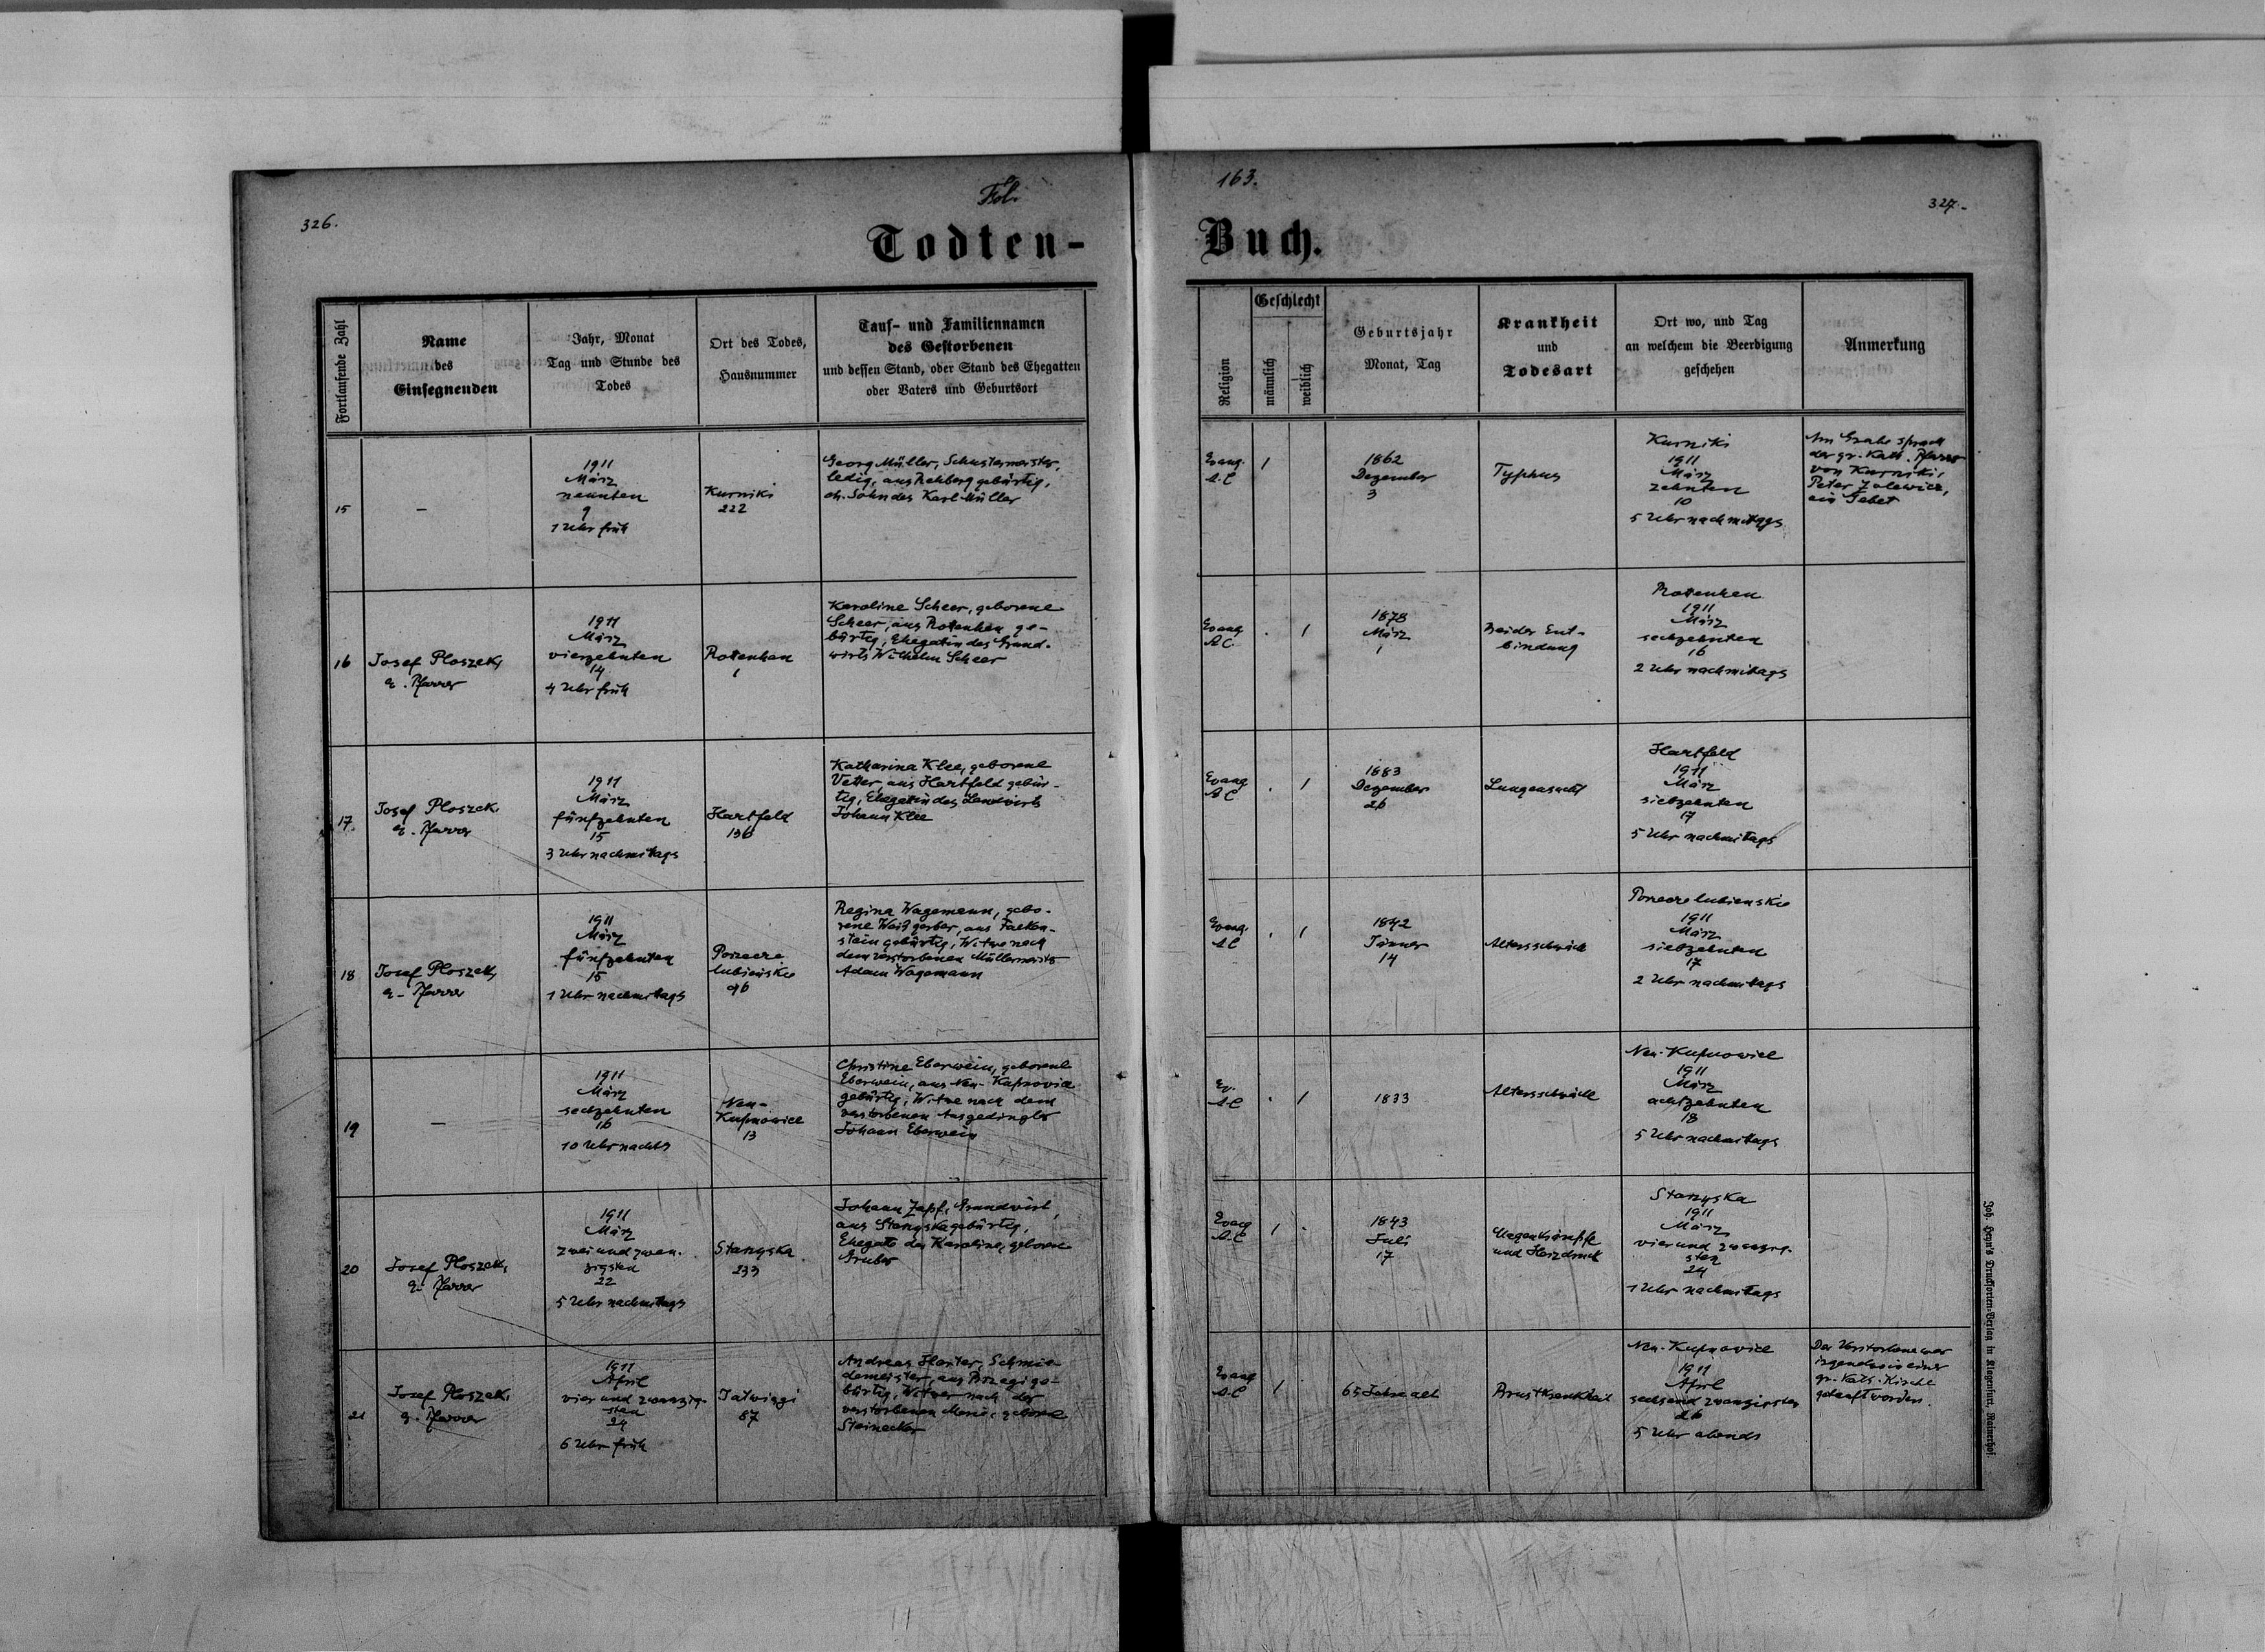 326.
Fol.
163.
327.
Todten-
Buch.
Fortlaufende Zahl
Name
des
Einsegnenden
Jahr, Monat
Tag und Stunde des
Todes
Ort des Todes,
Hausnummer
Tauf- und Familiennamen
des Gestorbenen
und dessen Stand, oder Stand des Ehegatten
oder Vaters und Geburtsort
Religion
Geschlecht
männlich
weiblich
Geburtsjahr
Monat, Tag
Krankheit
und
Todesart
Ort wo, und Tag
an welchem die Beerdigung
geschehen
Anmerkung
15
–
1911
März
neunten
9
1 Uhr früh
Kurniki
222
Georg Müller, Schustermeister,
ledig, aus Rehberg gebürtig,
eh. Sohn des Karl Müller
Evang.
A.C
1
1862
Dezember
3
Typhus
Kurniki
1911
März
zehnten
10
5 Uhr nachmittags
Am Grabe sprach
der gr. Kath. Pfarrer
von Kurniki,
Peter Zalewicz,
ein Gebet
16
Josef Ploszek,
e. Pfarrer
1911
März
vierzehnten
14
4 Uhr früh
Rottenhan
1
Karoline Scheer, geborene
Scheer, aus Rottenhan ge-
bürtig, Ehegatin des Grund-
wirts Wilhelm Scheer
Evang
A.C.
. 1
1878
März
1
Bei der Ent-
bindung
Rottenhan
1911
März
sechzehnten
16
2 Uhr nachmitags
17.
Josef Ploszek,
e. Pfarrer
1911
März
fünfzehnten
15
3 Uhr nachmitags
Hartfeld
136
Katharina Klee, geborene
Vetter, aus Hartfeld gebür-
tig, Ehegatin des Landwirts
Johann Klee
Evang
A C
. 1
1883
Dezember
26
Lungensucht
Hartfeld
1911
März
siebzehnten
17
5 Uhr nachmitags
18
Josef Ploszek,
e. Pfarrer
1911
März
fünfzehnten
15
1 Uhr nachmitags
Porzecze
lubieńskie
96
Regina Wagemann, gebo-
rene Weißgerber, aus Falken-
stein gebürtig, Witwe nach
dem verstorbenen Müllermeister
Adam Wagemann
Evang.
A C
. 1
1842
Jänner
14
Altersschwäche
Porzecze lubienskie
1911
März
siebzehnten
17
2 Uhr nachmitags
19
–
1911
März
sechzehnten
16
10 Uhr nachts
Neu-
Kupnowice
13
Christine Eberwein, geborene
Eberwein, aus Neu-Kupnowice
gebürtig, Witwe nach dem
verstorbenen Ausgedingler
Johann Eberwein
Ev.
A C
. 1
1833
Altersschwäche
Neu-Kupnowice
1911
März
achtzehnten
18
5 Uhr nachmitags
20
Josef Ploszek,
e. Pfarrer
1911
März
zwei und zwan-
zigsten
22
5 Uhr nachmitags
Starzyska
233
Johann Zapf, Grundwirt,
aus Starzyska gebürtig,
Ehegate der Karoline, geborene
Gruber
Evang
A.C
1 .
1843
Juli
17
Magenkrämpfe
und Herzdruck
Starzyska
1911
März
vier und zwanzig-
sten
24
1 Uhr nachmitags
21
Josef Ploszek,
e. Pfarrer
1911
April
vier und zwanzig-
sten
24
6 Uhr früh
Jatwięgi
87
Andreas Harter, Schmie-
demeister, aus ge-
bürtig, Witwer nach der
verstorbenen Marie, geborene
Steinecker
Evang
A.C
1 .
65 Jahre alt
Brustkrankheit
Neu-Kupnowice
1911
April
sechsund zwanzigsten
26
5 Uhr abends
Der Verstorbene war
irgendwo in einer
gr. Kath. Kirche
getauft worden.
Joh. Heyn's Drucksorten-Verlag in Klagenfurt, Rainerhof.